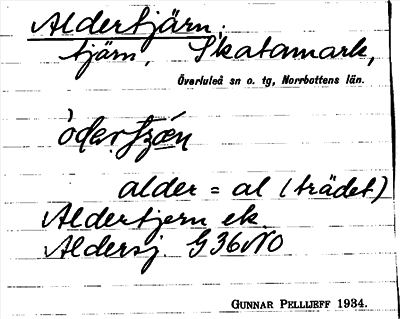 Aldertjärn,
tjärn, Skatamark,
Överluleå sn o. tg, Norrbottens län.
alder = al (trädet)
Aldertjern ek
Aldersj. G36NO
GUNNAR PELLIJEFF 1934.